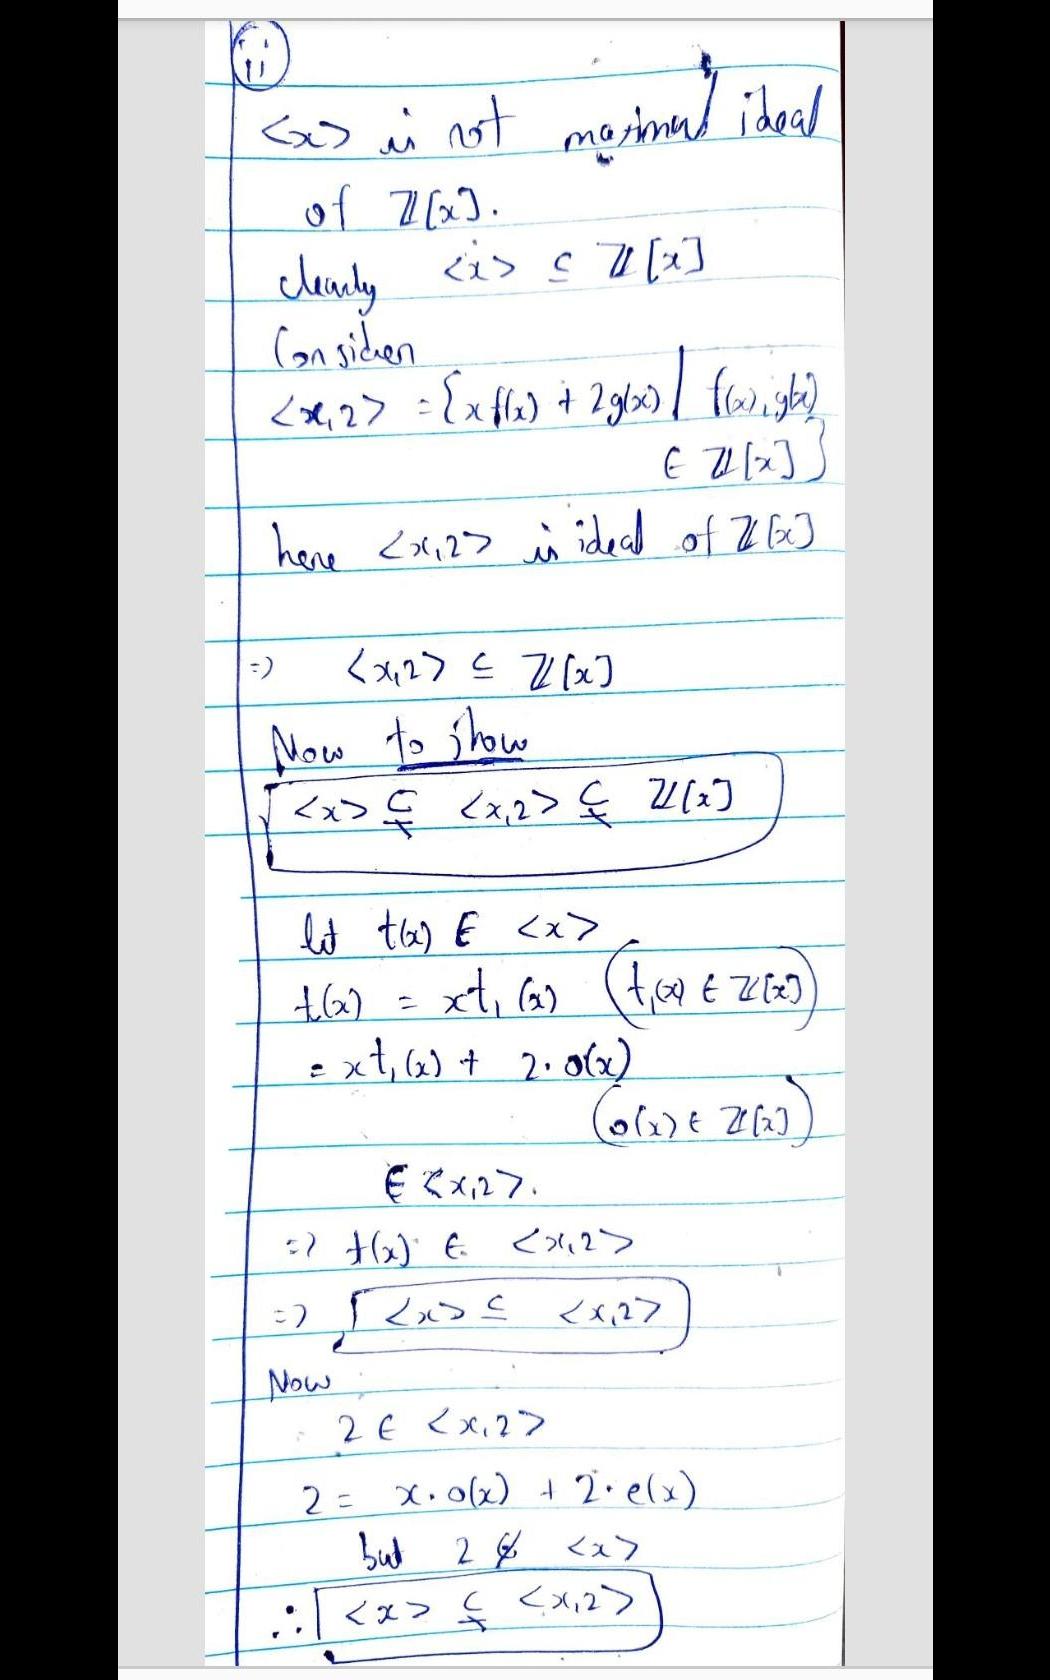 11
<x> is not maximal ideal
of ℤ[x].
clearly <x> ⊆ ℤ[x]
Consider
<x,2> = {x f(x) + 2g(x) | f(x), g(x)
∈ ℤ[x]}
here <x,2> is ideal of ℤ[x]
=> <x,2> ⊆ ℤ[x]
Now to show
<x> ⊊ <x,2> ⊊ ℤ[x]
let t(x) ∈ <x>
t(x) = xt₁(x) (t₁(x) ∈ ℤ[x])
= xt₁(x) + 2·o(x)
(o(x) ∈ ℤ[x])
∈ <x,2>.
=> t(x) ∈ <x,2>
=> <x> ⊆ <x,2>
Now
2 ∈ <x,2>
2 = x·o(x) + 2·e(x)
but 2 ∉ <x>
∴ <x> ⊊ <x,2>